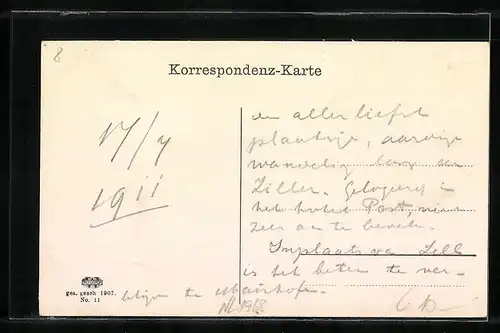 8
Korrespondenz-Karte
17/7
1911
en aller liefst
plaatsje, aardige
wandeling langs de
Ziller. Gelogeerd in
het hotel Post, niet
zeer aan te bevelen.
Inplaats van Zell
is het beter te ver-
blijven te Mairhofen.
ges. gesch. 1907.
No. 11